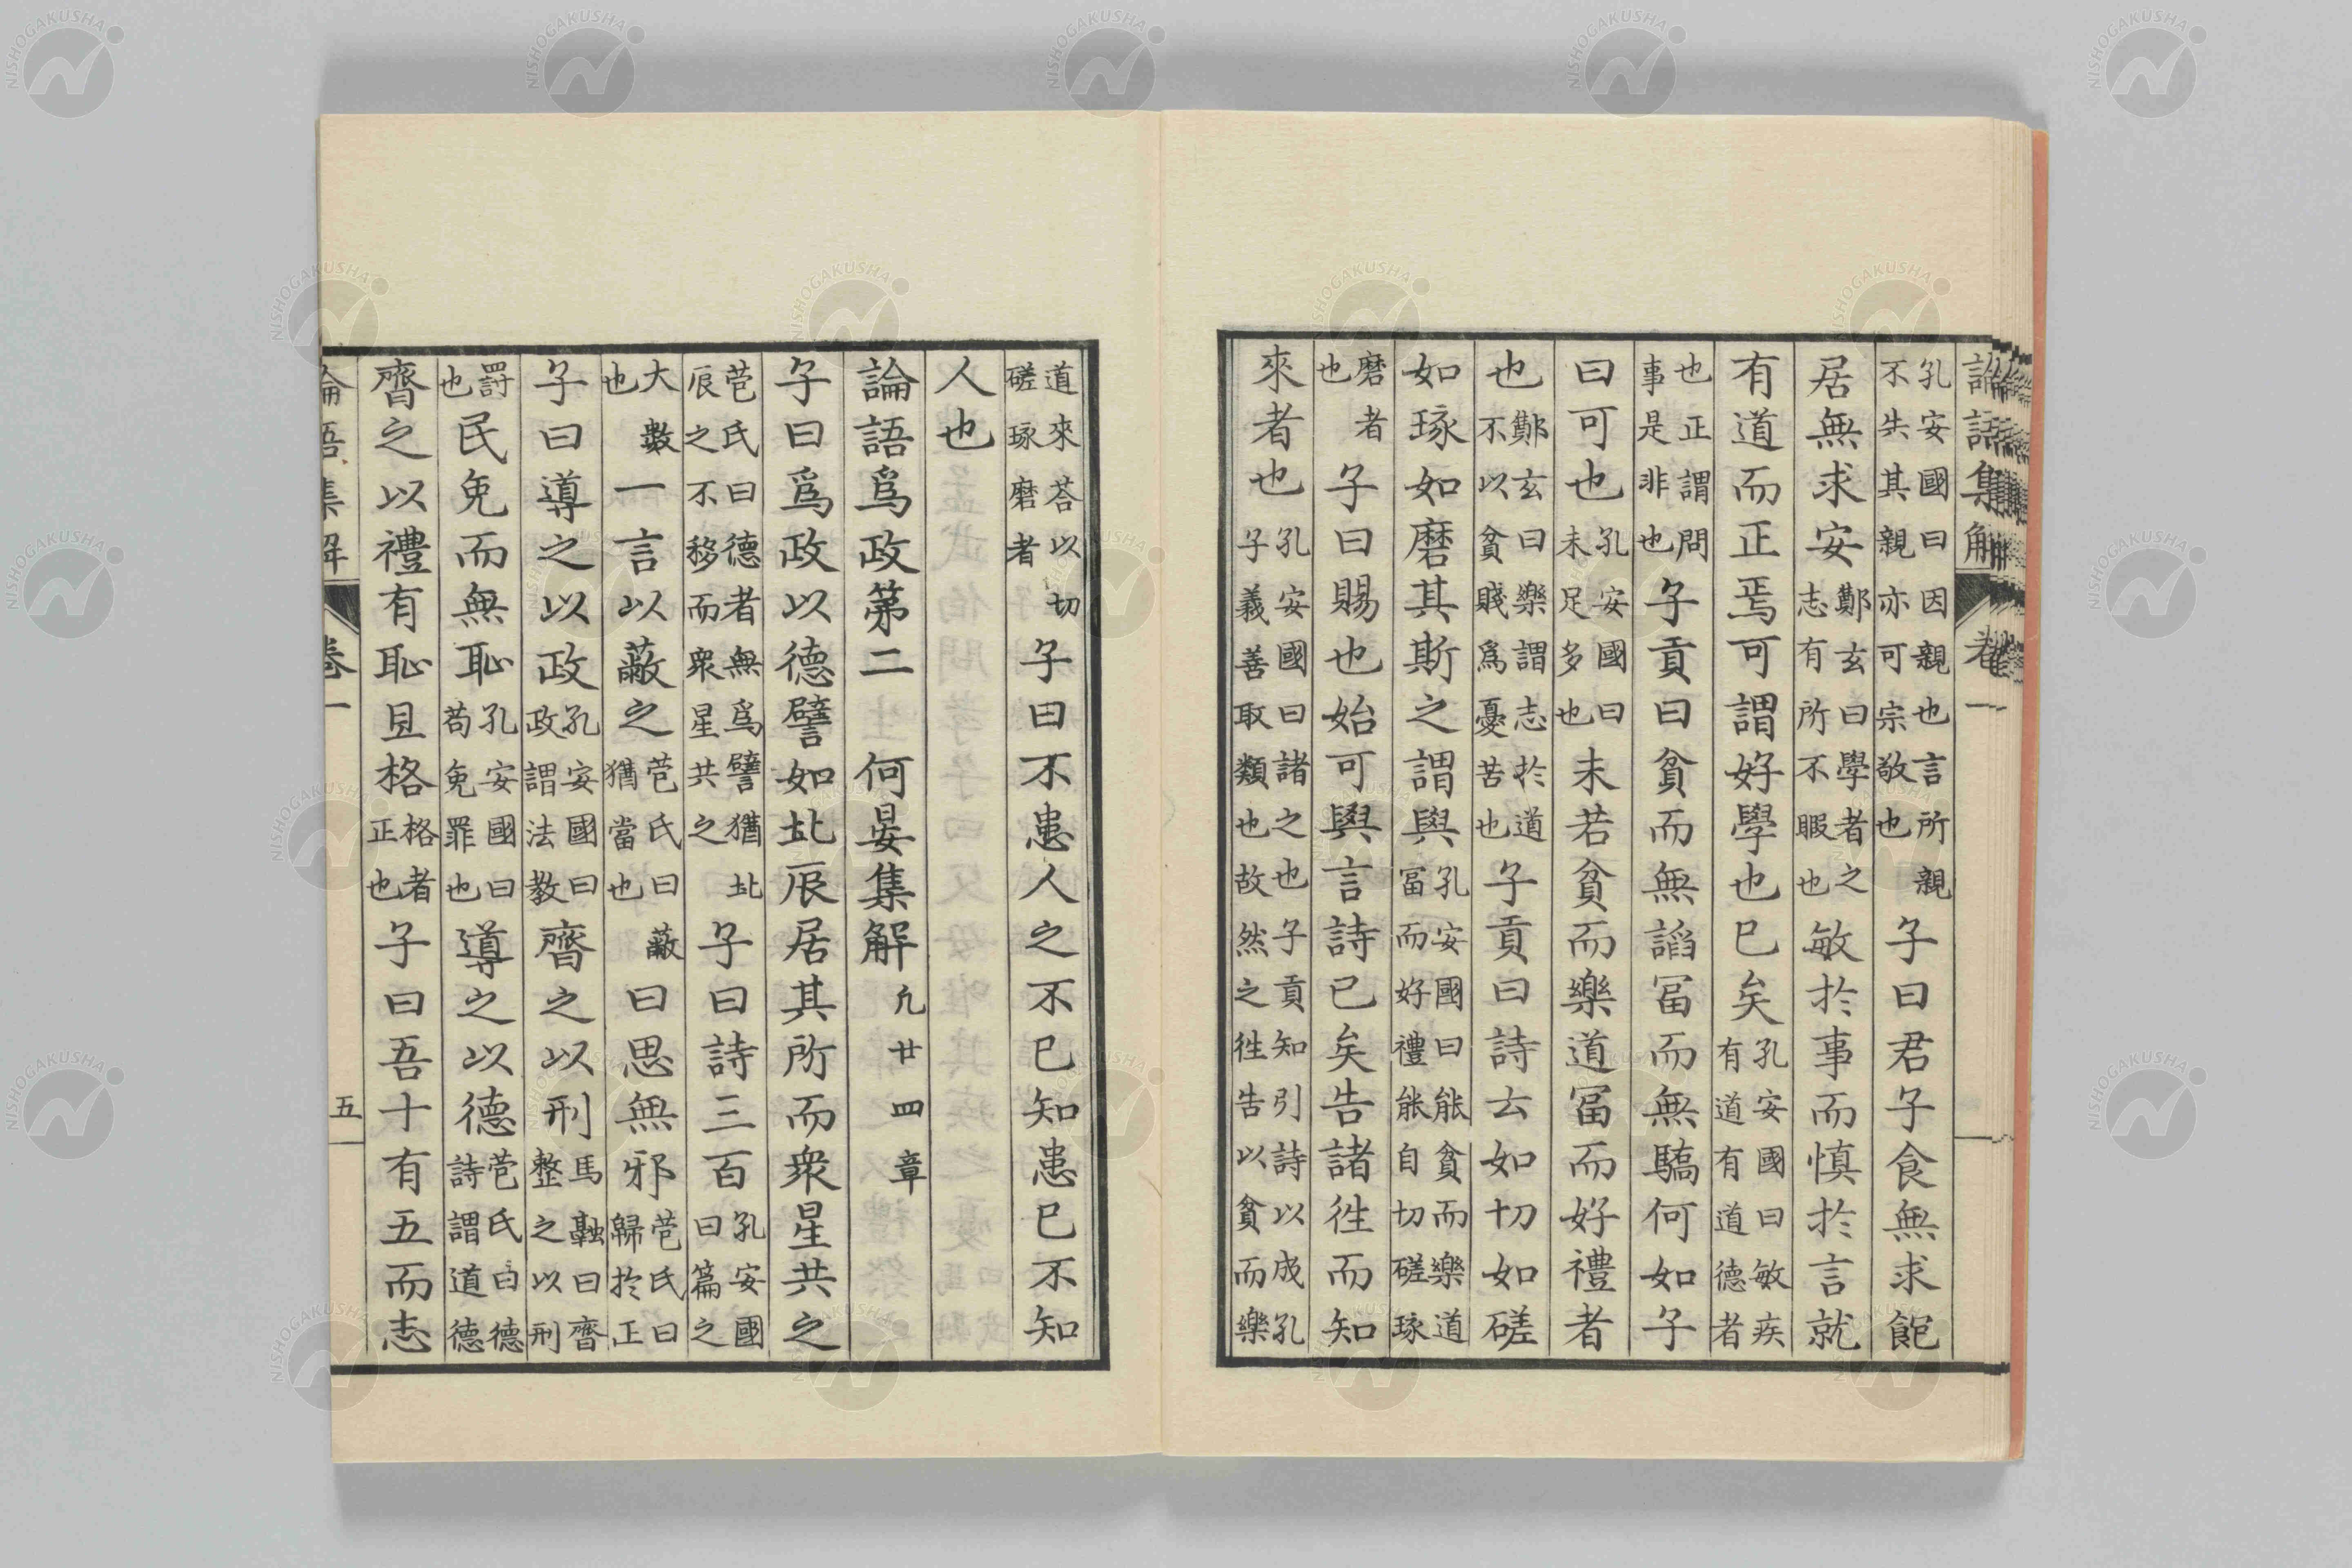 論語集解 卷一
孔安國曰因親也言所親不失其親亦可宗敬也子曰君子食無求飽
居無求安鄭玄曰學者之志有所不暇也敏於事而慎於言就
有道而正焉可謂好學也已矣孔安國曰敏疾有道有道德者
也正謂問事是非也子貢曰貧而無謟冨而無驕何如子
曰可也孔安國曰未足多也未若貧而樂道冨而好禮者
也鄭玄曰樂謂志於道不以貧賤爲憂苦也子貢曰詩云如切如磋
如琢如磨其斯之謂與孔安國曰能貧而樂道冨而好禮能自切磋琢
磨者也子曰賜也始可與言詩已矣告諸徃而知
來者也孔安國曰諸之也子貢知引詩以成孔子義善取類也故然之徃告以貧而樂
道來荅以切磋琢磨者子曰不患人之不已知患已不知
人也
論語爲政第二 何晏集解 凡廿四章
子曰爲政以德譬如北辰居其所而衆星共之
苞氏曰德者無爲譬猶北辰之不移而衆星共之子曰詩三百孔安國曰篇之
大數也一言以蔽之苞氏曰蔽猶當也曰思無邪苞氏曰歸於正
子曰導之以政孔安國曰政謂法教齊之以刑馬融曰齊整之以刑
罰也民免而無恥孔安國曰苟免罪也導之以德苞氏曰德詩謂道德
齊之以禮有恥且格格者正也子曰吾十有五而志
論語集解 卷一 五
NISHOGAKUSHA